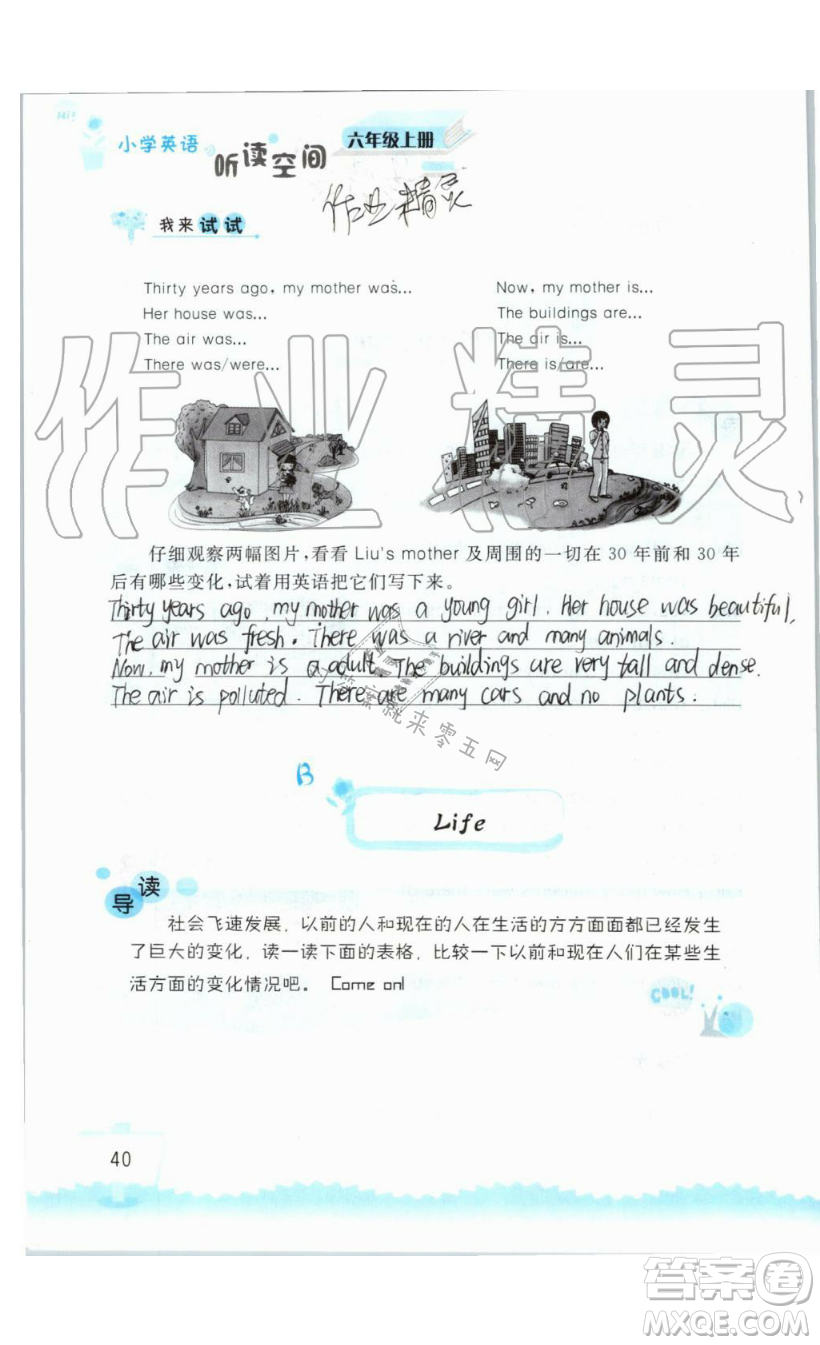 小学英语
听读空间
六年级上册
作业精灵
我来试试
Thirty years ago, my mother was...
Her house was...
The air was...
There was/were...
Now, my mother is...
The buildings are...
The air is...
There is/are...
作业精灵
仔细观察两幅图片，看看 Liu's mother 及周围的一切在 30 年前和 30 年
后有哪些变化，试着用英语把它们写下来。
Thirty years ago, my mother was a young girl. Her house was beautiful,
The air was fresh. There was a river and many animals.
Now, my mother is a adult. The buildings are very tall and dense.
The air is polluted. There are many cars and no plants.
作业精灵
对答案就来零五网
B
Life
导读
社会飞速发展，以前的人和现在的人在生活的方方面面都已经发生
了巨大的变化，读一读下面的表格，比较一下以前和现在人们在某些生
活方面的变化情况吧。 Come on!
COOL!
40
答案卷
MXQE.COM